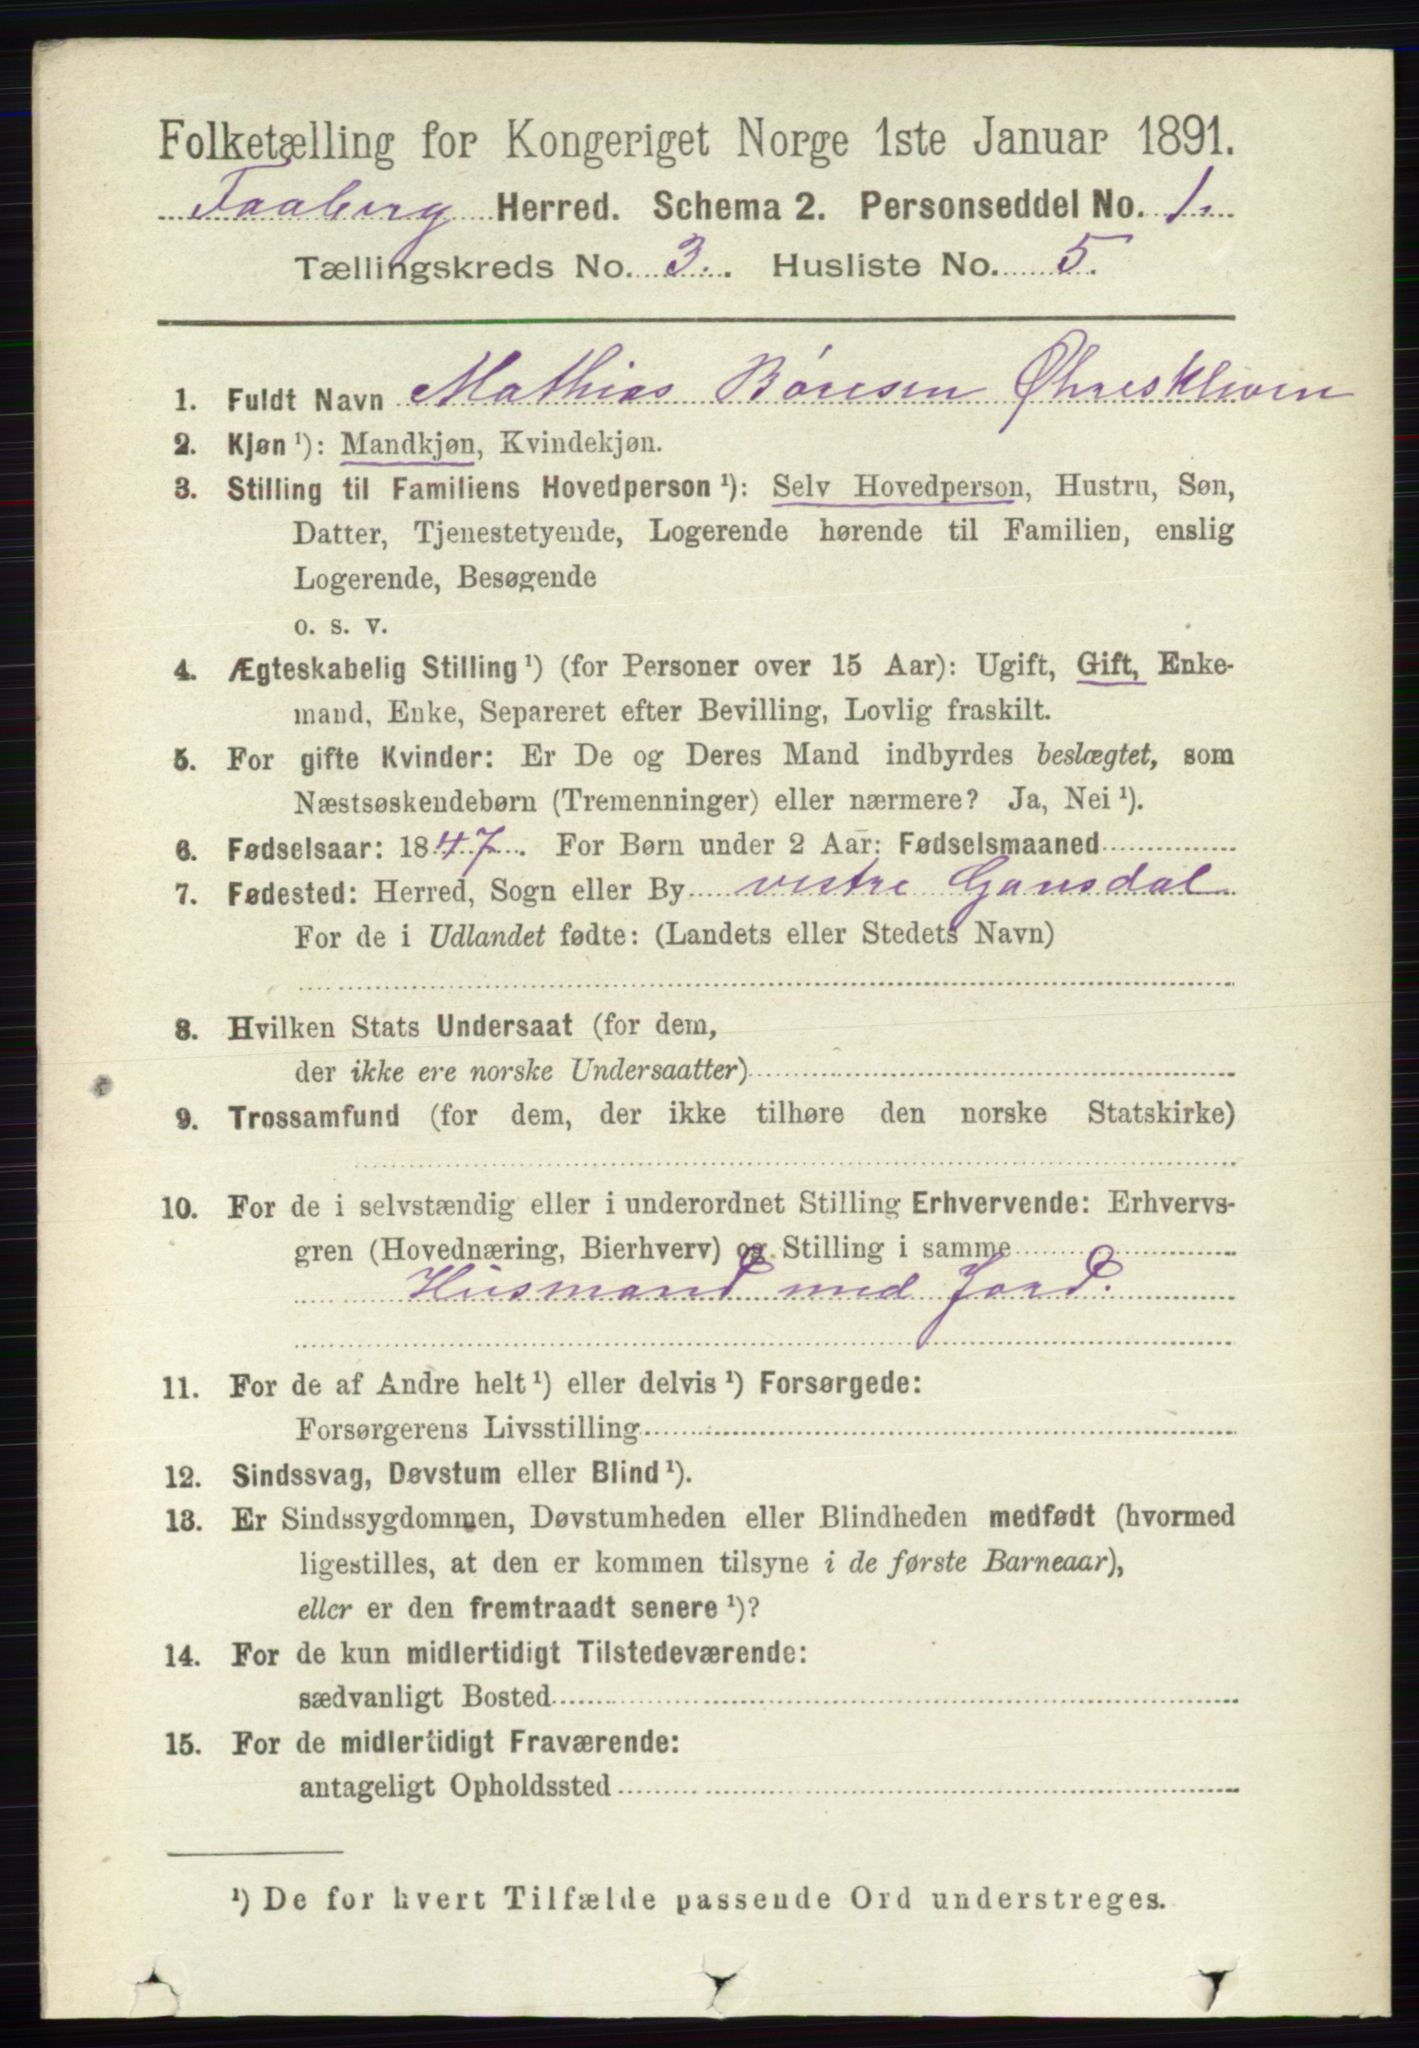 Folketælling for Kongeriget Norge 1ste Januar 1891.
Faaberg Herred. Schema 2. Personseddel No. 1.
Tællingskreds No. 3. Husliste No. 5.
1. Fuldt Navn Mathias Börresen Öhreskleven
2. Kjøn ¹): Mandkjøn, Kvindekjøn.
3. Stilling til Familiens Hovedperson ¹): Selv Hovedperson, Hustru, Søn,
Datter, Tjenestetyende, Logerende hørende til Familien, enslig
Logerende, Besøgende
o. s. v.
4. Ægteskabelig Stilling ¹) (for Personer over 15 Aar): Ugift, Gift, Enke-
mand, Enke, Separeret efter Bevilling, Lovlig fraskilt.
5. For gifte Kvinder: Er De og Deres Mand indbyrdes beslægtet, som
Næstsøskendebørn (Tremenninger) eller nærmere? Ja, Nei ¹).
6. Fødselsaar: 1847. For Børn under 2 Aar: Fødselsmaaned
7. Fødested: Herred, Sogn eller By vestre Gausdal
For de i Udlandet fødte: (Landets eller Stedets Navn)
8. Hvilken Stats Undersaat (for dem,
der ikke ere norske Undersaatter)
9. Trossamfund (for dem, der ikke tilhøre den norske Statskirke)
10. For de i selvstændig eller i underordnet Stilling Erhvervende: Erhvervs-
gren (Hovednæring, Bierhverv) og Stilling i samme
Husmand med Jord.
11. For de af Andre helt ¹) eller delvis ¹) Forsørgede:
Forsørgerens Livsstilling
12. Sindssvag, Døvstum eller Blind ¹).
13. Er Sindssygdommen, Døvstumheden eller Blindheden medfødt (hvormed
ligestilles, at den er kommen tilsyne i de første Barneaar),
eller er den fremtraadt senere ¹)?
14. For de kun midlertidigt Tilstedeværende:
sædvanligt Bosted
15. For de midlertidigt Fraværende:
antageligt Opholdssted
¹) De for hvert Tilfælde passende Ord understreges.